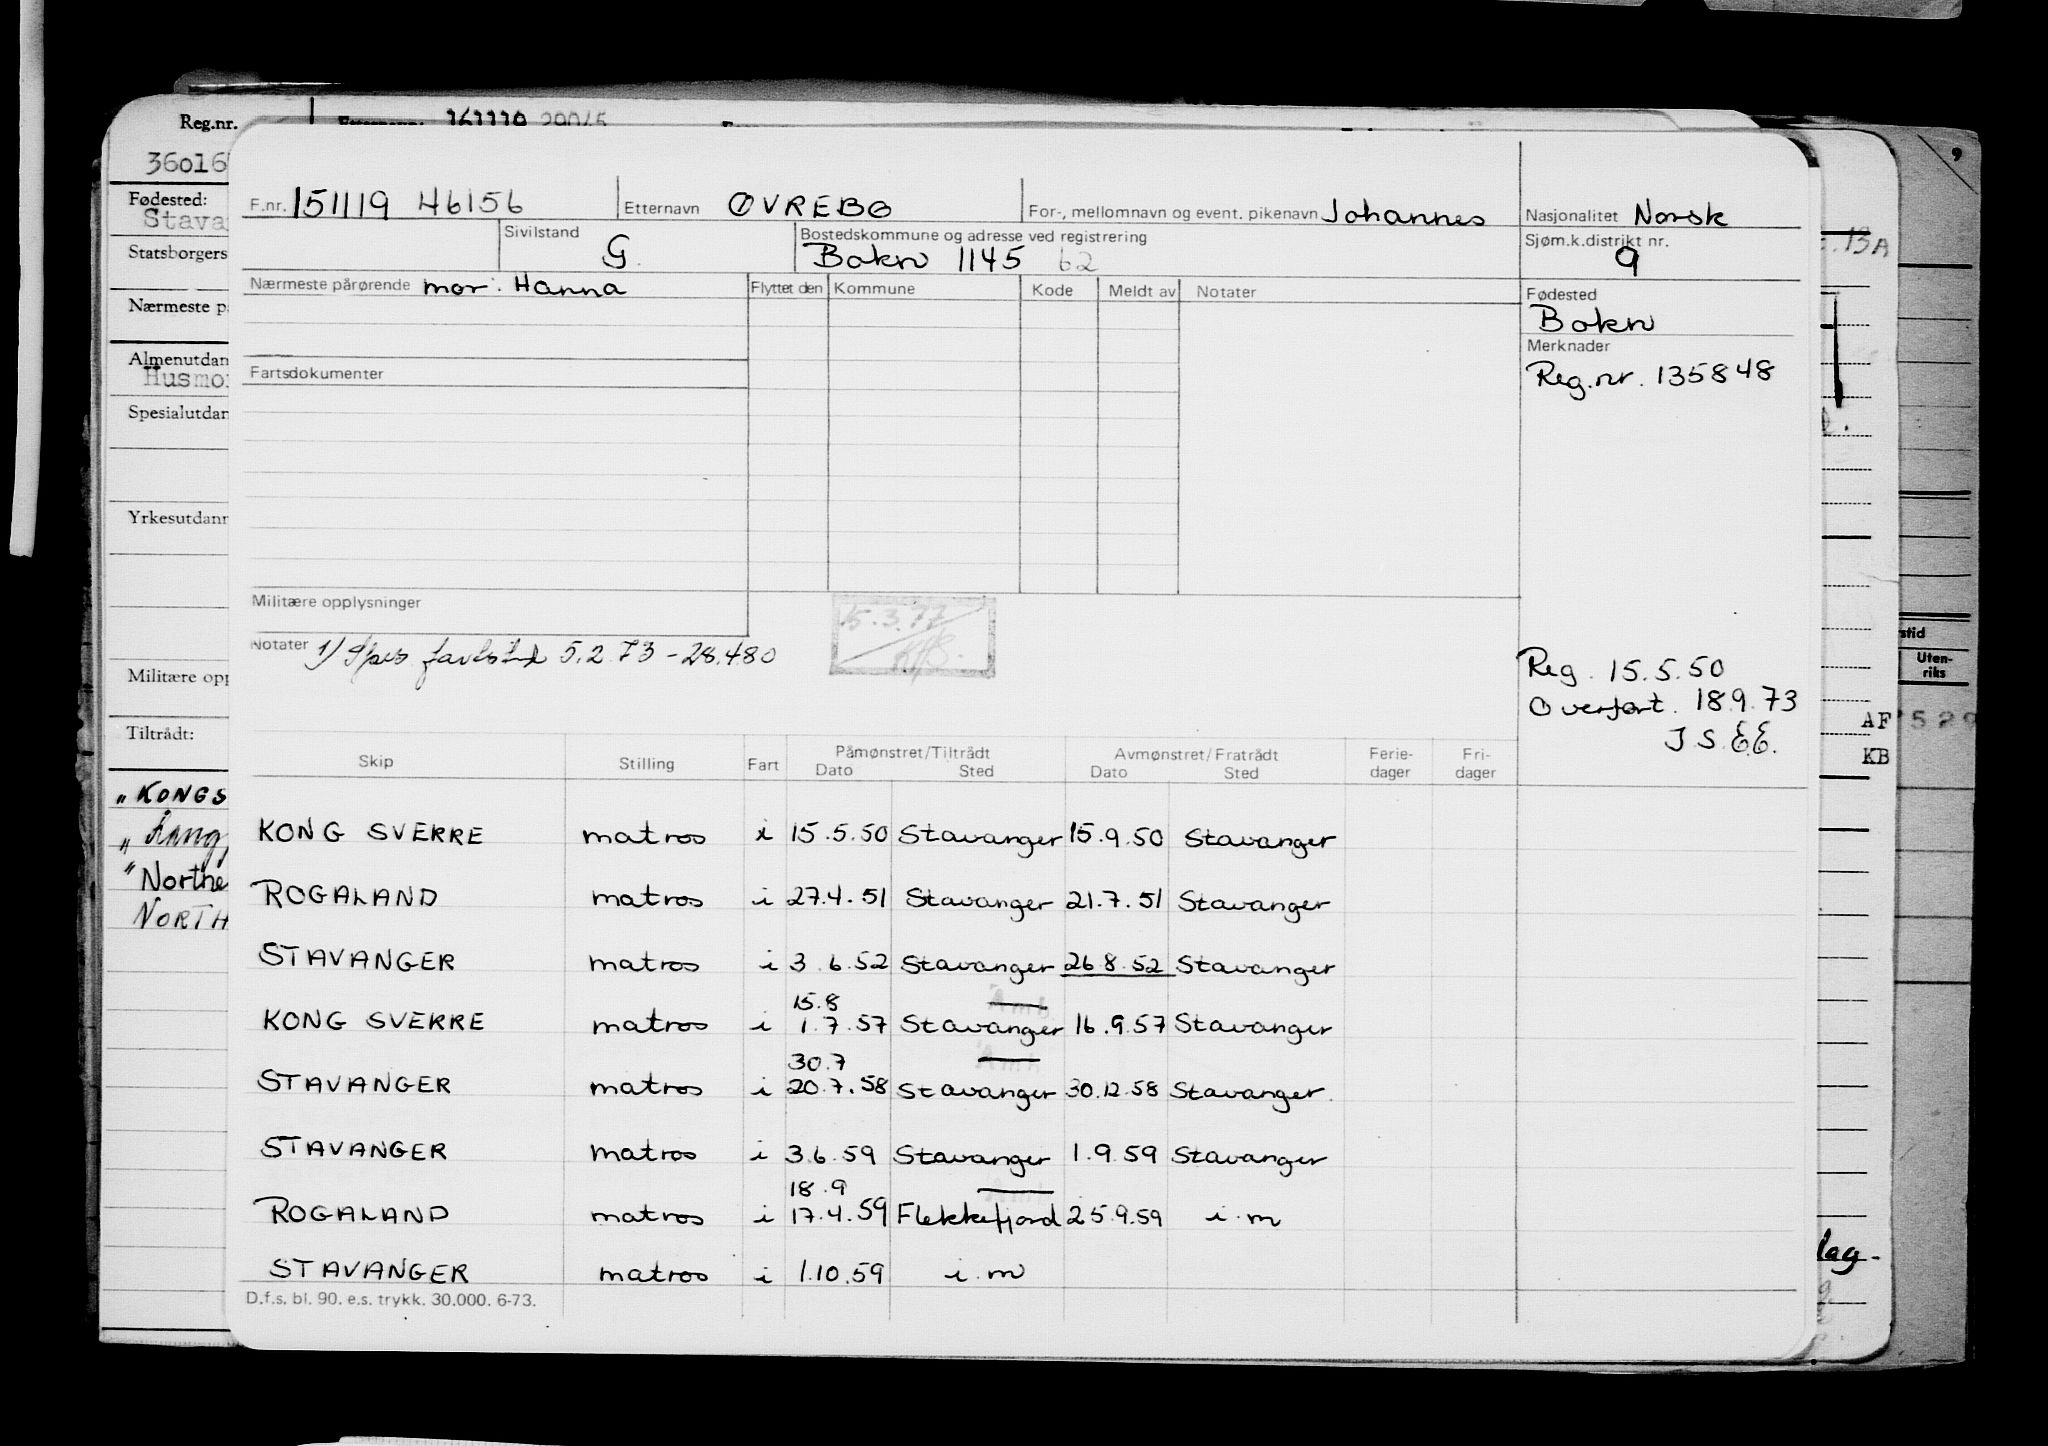 Reg.nr.
36016
Fødested:
Stava
Statsborgers
Nærmeste p
Almenutdan
Husmo
Spesialutdan
Yrkesutdann
Militære opp
Tiltrådt:
"KONGS
"Kong
"Northe
NORTH
F.nr. 151119 46156 Etternavn ØVREBØ For-, mellomnavn og event. pikenavn Johannes Nasjonalitet Norsk
Sivilstand G. Bostedskommune og adresse ved registrering Bokn 1145 62 Sjøm.k.distrikt nr. 9
Nærmeste pårørende mor: Hanna Flyttet den Kommune Kode Meldt av Notater Fødested
Bokn
Merknader
Fartsdokumenter Reg.nr. 135848
Militære opplysninger 15.3.77
Notater 1) Spes fartstid 5.2.73-28.4.80
Reg. 15.5.50
Overført. 18.9.73
J.S.E.E.
Skip Stilling Fart Påmønstret/Tiltrådt Dato Sted Avmønstret/Fratrådt Dato Sted Ferie-dager Fri-dager
KONG SVERRE matros i 15.5.50 Stavanger 15.9.50 Stavanger
ROGALAND matros i 27.4.51 Stavanger 21.7.51 Stavanger
STAVANGER matros i 3.6.52 Stavanger 26.8.52 Stavanger
15.8
KONG SVERRE matros i 1.7.57 Stavanger 16.9.57 Stavanger
30.7
STAVANGER matros i 20.7.58 Stavanger 30.12.58 Stavanger.
STAVANGER matros i 3.6.59 Stavanger 1.9.59 Stavanger
18.9
ROGALAND matros i 17.4.59 Flekkefjord 25.9.59 i.m
STAVANGER matros i 1.10.59 i.m
D.f.s. bl. 90. e.s. trykk. 30.000. 6-73.
13A
stid
Uten-
riks
AF 529
KB
lag-